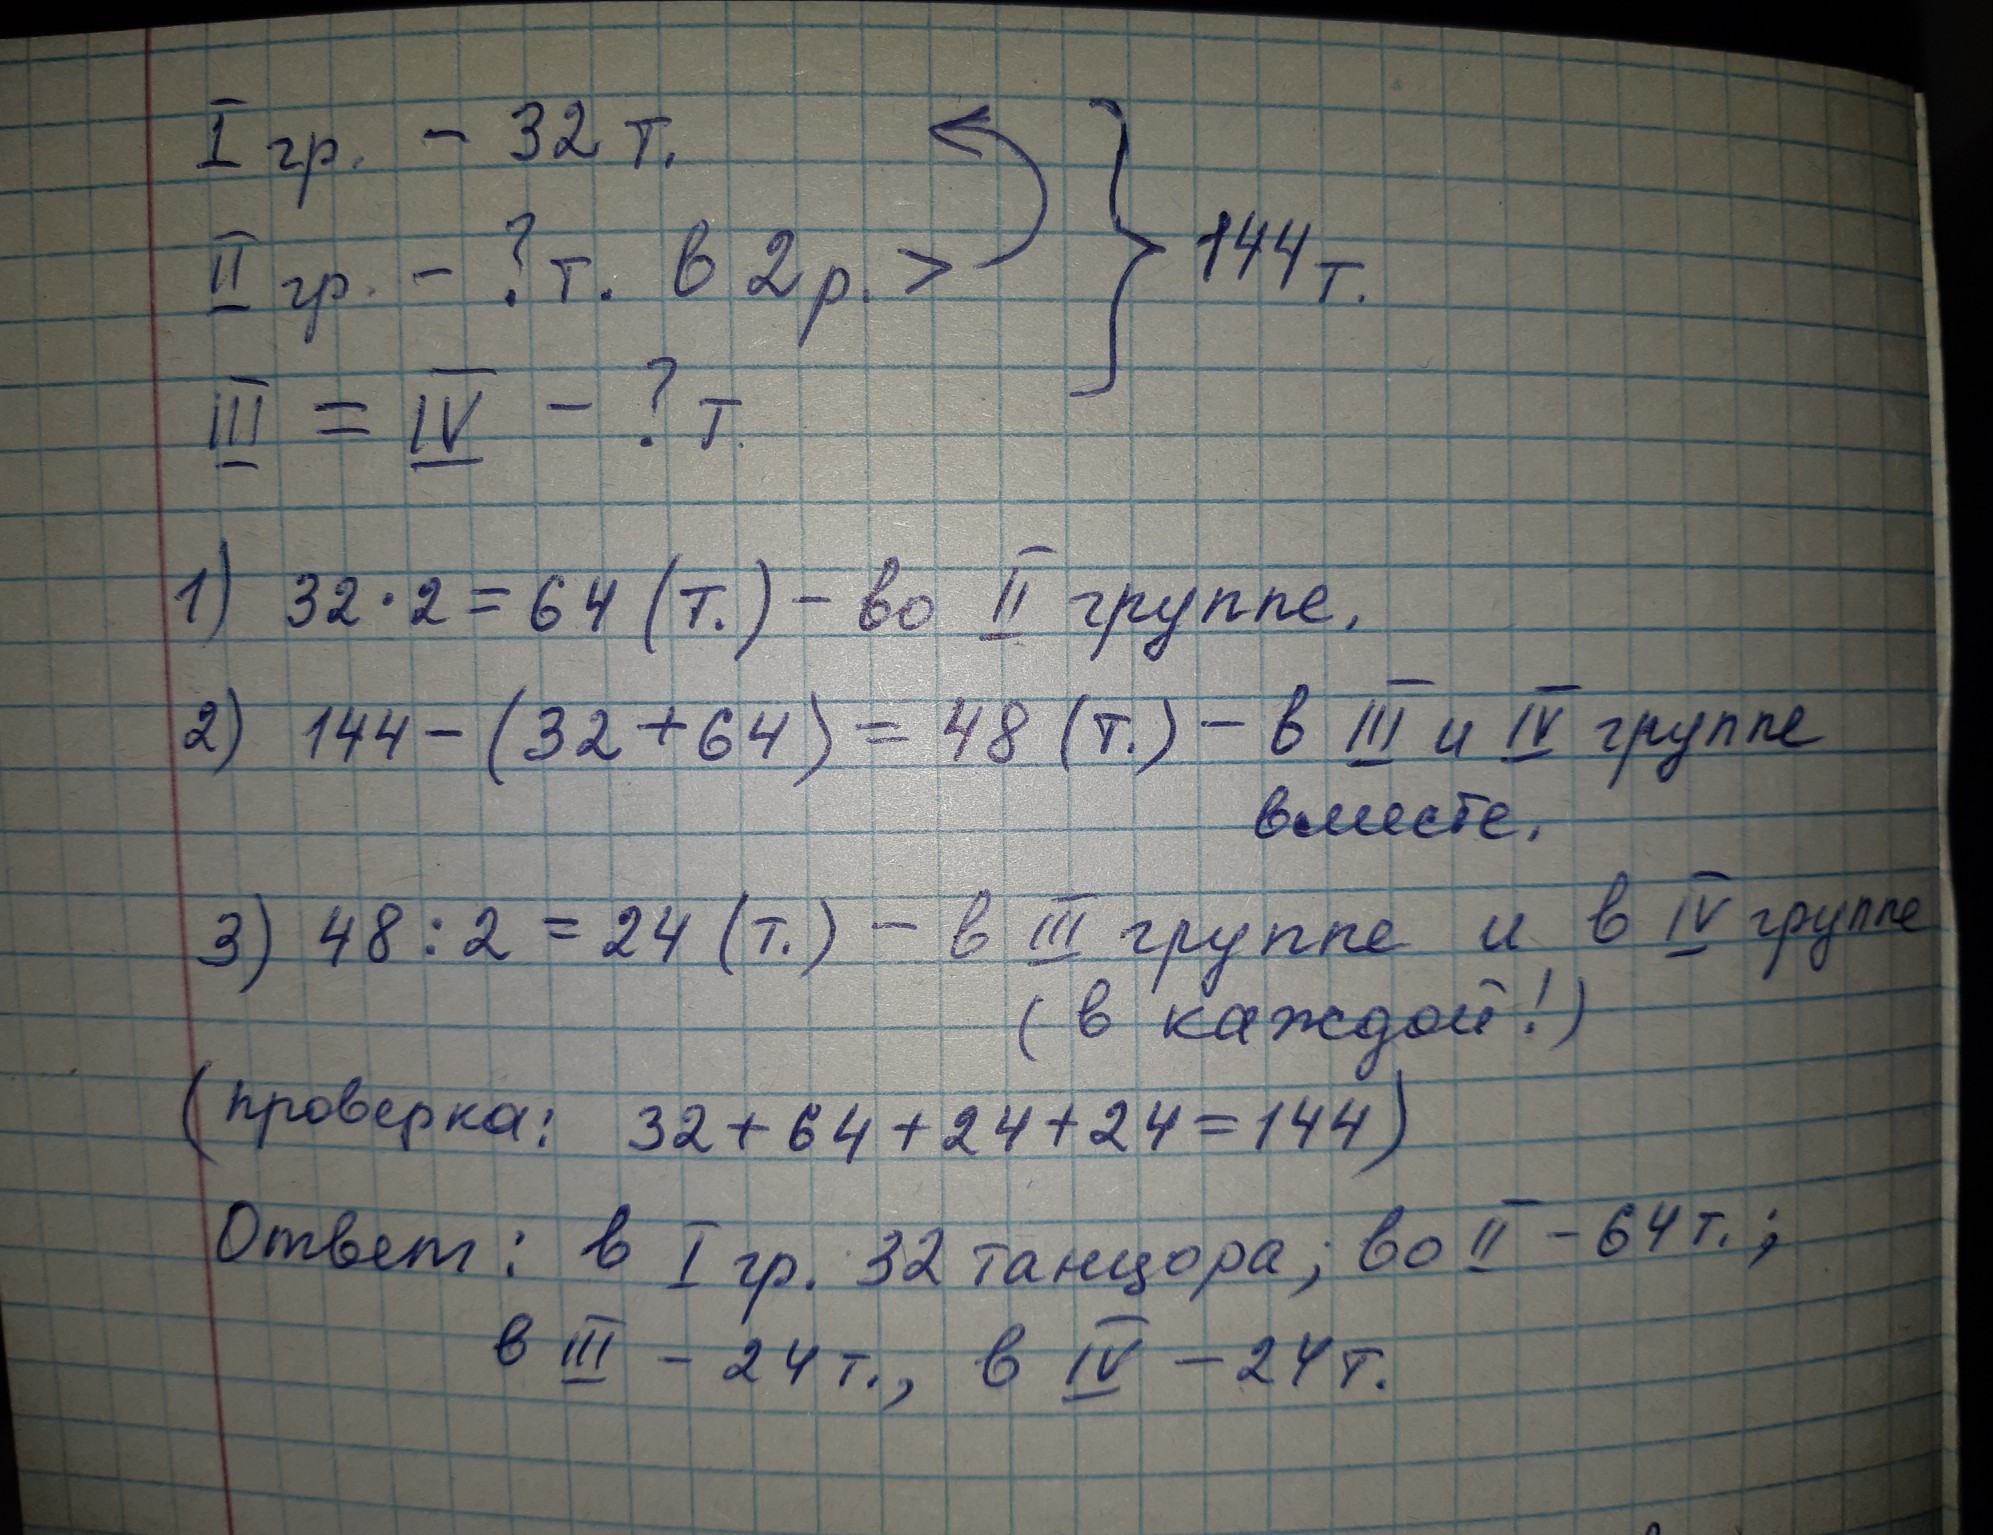 I гр. - 32 т.
II гр. - ? т. в 2 р. >
144 т.
III = IV - ? т.
1) 32 · 2 = 64 (т.) - во II группе.
2) 144 - (32 + 64) = 48 (т.) - в III и IV группе
вместе.
3) 48 : 2 = 24 (т.) - в III группе и в IV группе
(в каждой!)
(проверка: 32 + 64 + 24 + 24 = 144)
Ответ: в I гр. 32 танцора; во II - 64 т.;
в III - 24 т., в IV - 24 т.